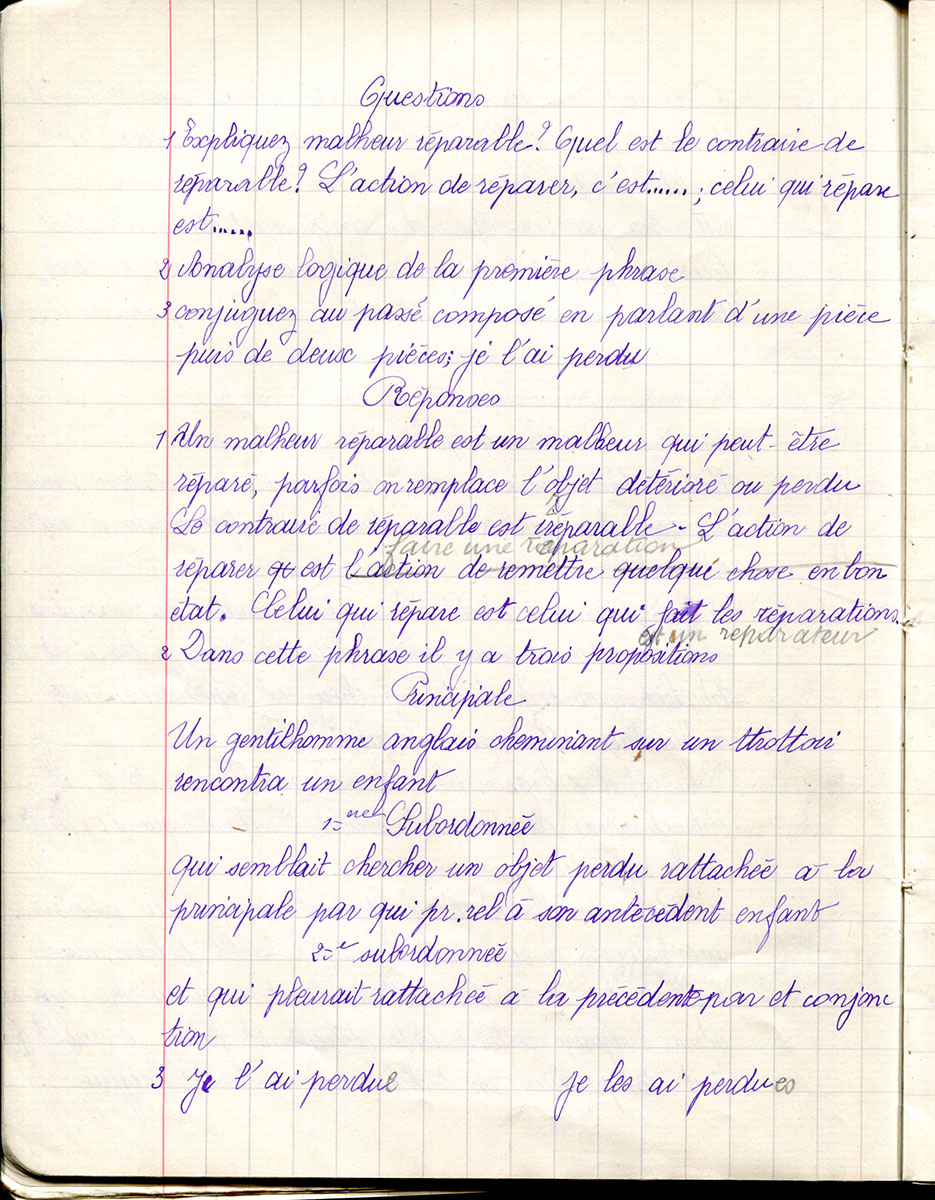 Questions
1 Expliquez malheur réparable? Quel est le contraire de
réparable? L'action de réparer, c'est......; celui qui répare
est.....
2 Analyse logique de la première phrase
3 conjuguez au passé composé en parlant d'une pièce
puis de deux pièces; je l'ai perdu
Réponses
1 Un malheur réparable est un malheur qui peut-être
réparé, parfois on remplace l'objet détérioré ou perdu
Le contraire de réparable est iréparable - L'action de
faire une réparation
réparer est l'action de remettre quelque chose en bon
état. Celui qui répare est celui qui fait les réparations.
est un réparateur
2 Dans cette phrase il y a trois propositions
Principale
Un gentilhomme anglais cheminant sur un trottoir
rencontra un enfant
1ère Subordonnée
qui semblait chercher un objet perdu rattachée à la
principale par qui pr. rel à son antécédent enfant
2e subordonnée
et qui pleurait rattachée à la précédente par et conjonc
tion
3 Je l'ai perdue je les ai perdues